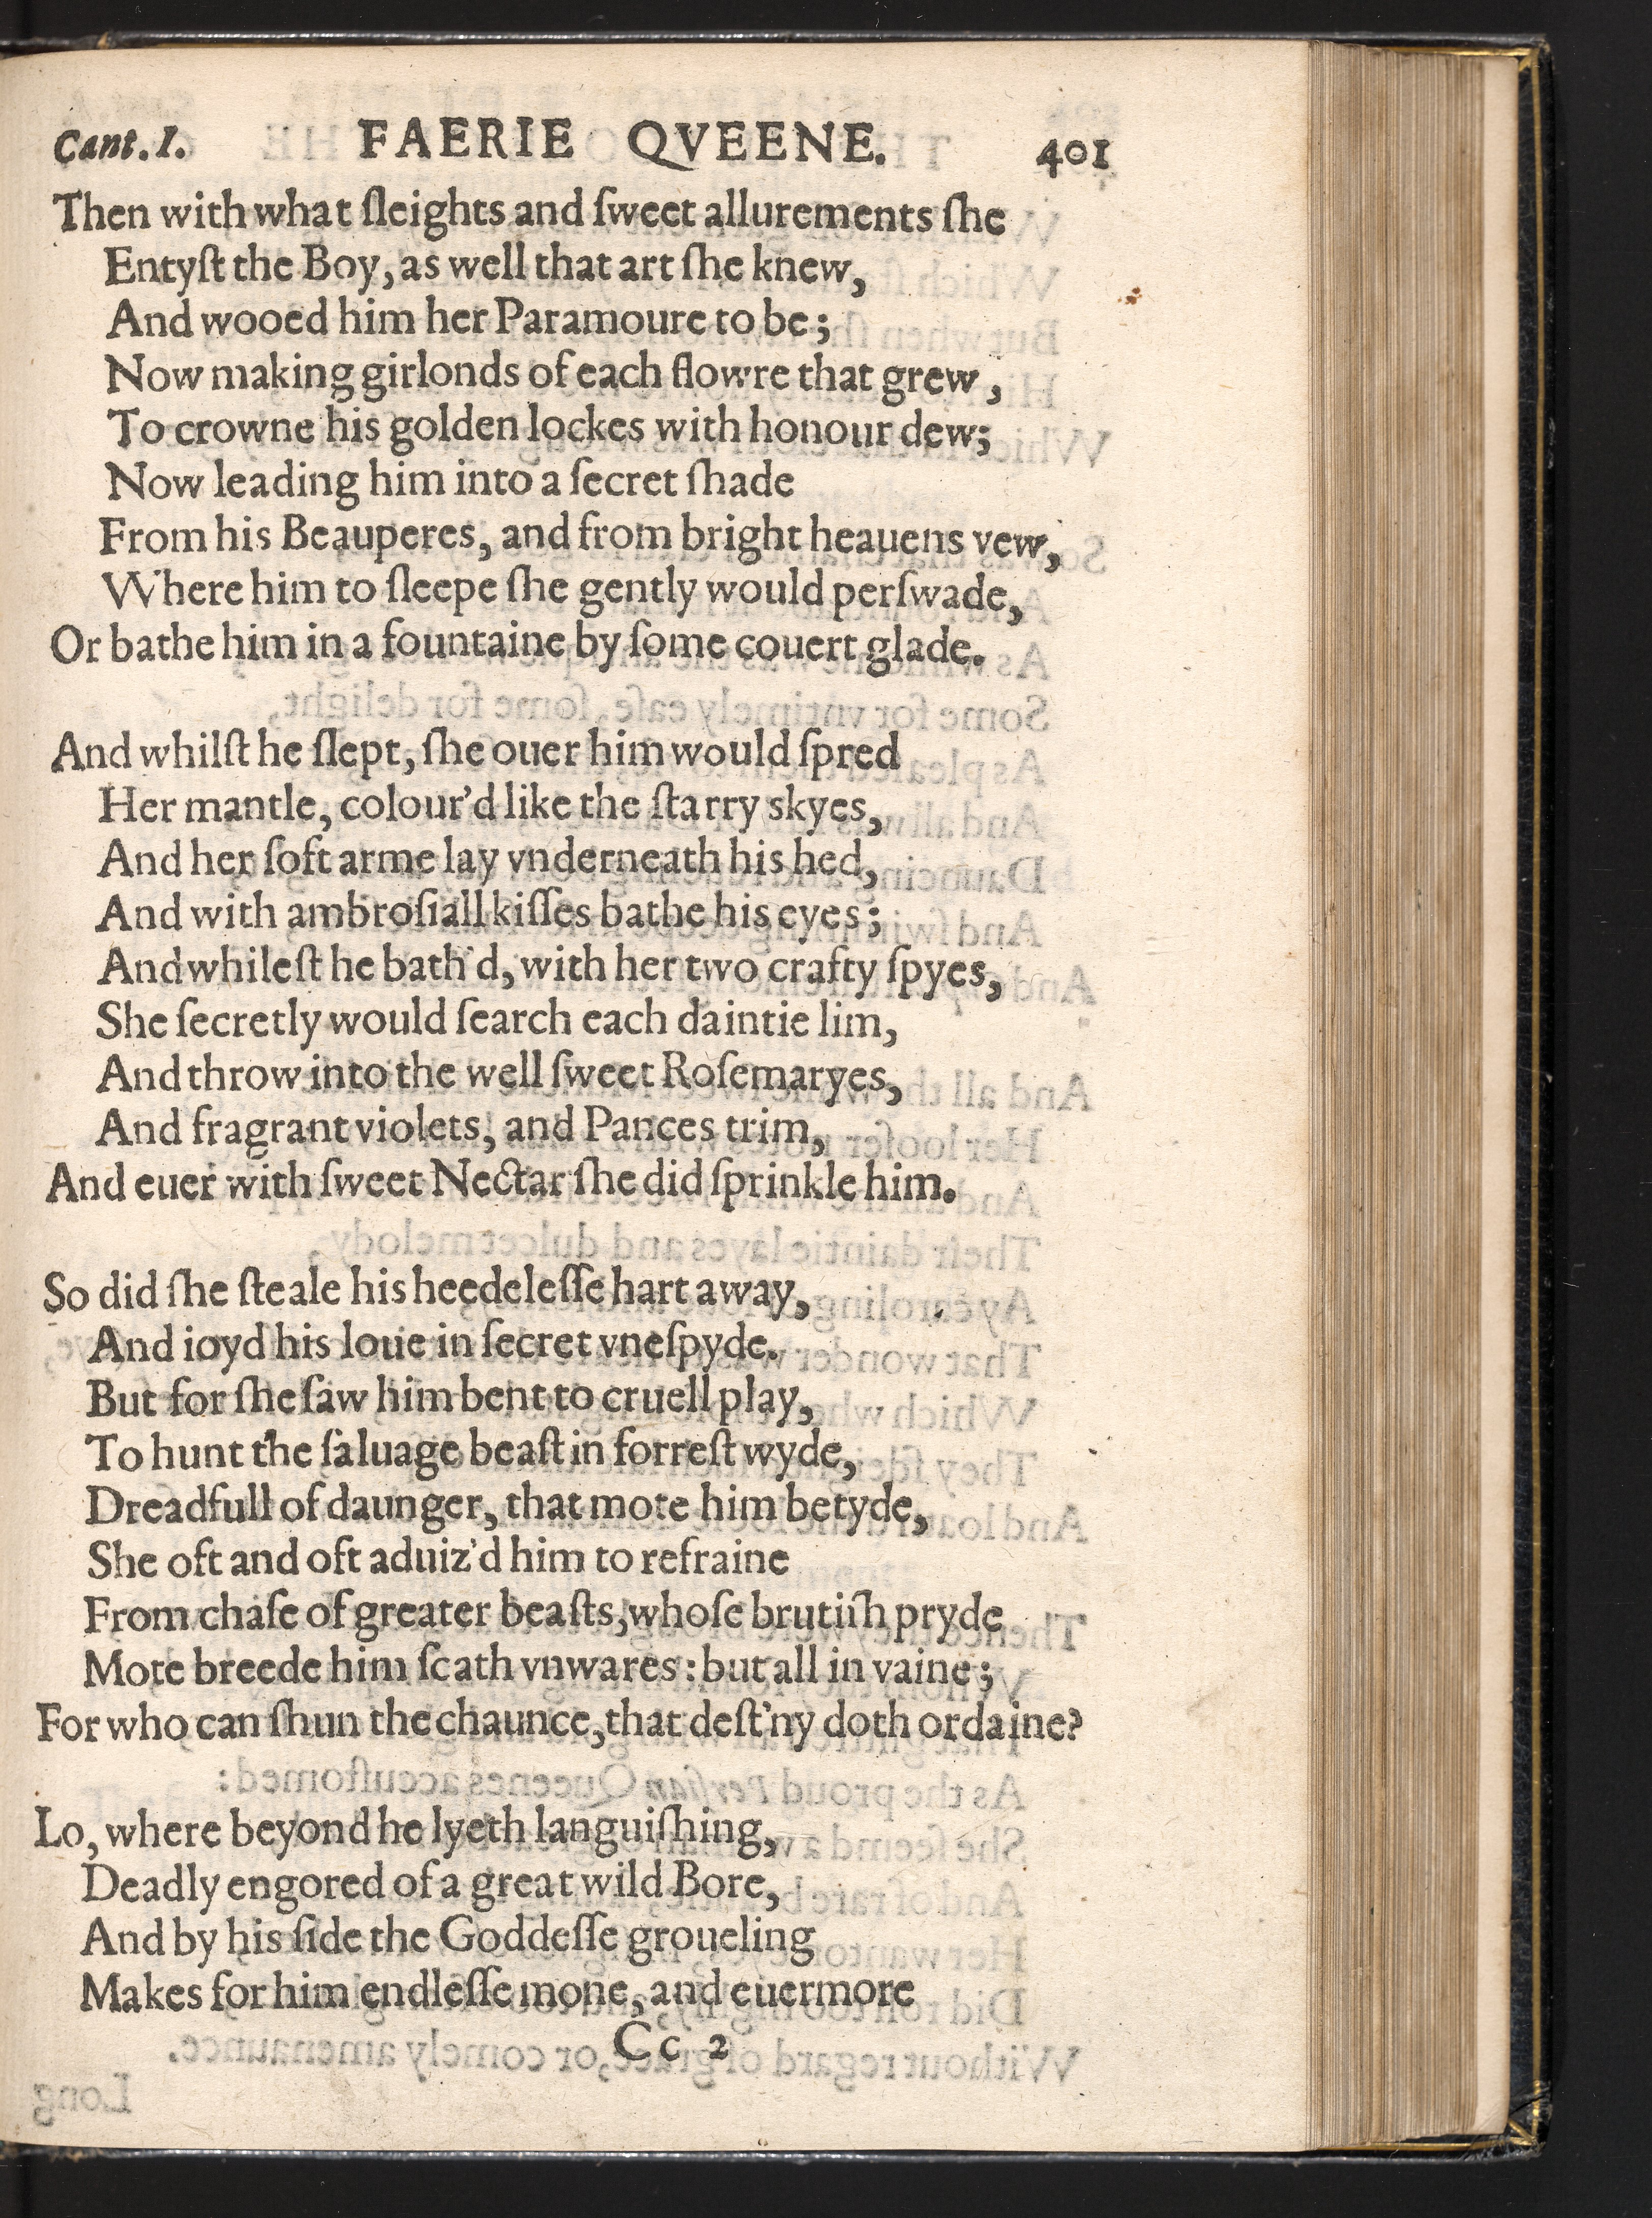 Cant. I. FAERIE QVEENE. 401
Then with what ſleights and ſweet allurements ſhe
Entyſt the Boy, as well that art ſhe knew,
And wooed him her Paramoure to be;
Now making girlonds of each flowre that grew,
To crowne his golden lockes with honour dew;
Now leading him into a ſecret ſhade
From his Beauperes, and from bright heauens vew,
Where him to ſleepe ſhe gently would perſwade,
Or bathe him in a fountaine by ſome couert glade.
And whilſt he ſlept, ſhe ouer him would ſpred
Her mantle, colour'd like the ſtarry skyes,
And her ſoft arme lay vnderneath his hed,
And with ambroſiall kiſſes bathe his eyes;
And whileſt he bath'd, with her two crafty ſpyes,
She ſecretly would ſearch each daintie lim,
And throw into the well ſweet Roſemaryes,
And fragrant violets, and Pances trim,
And euer with ſweet Nectar ſhe did ſprinkle him.
So did ſhe ſteale his heedeleſſe hart away,
And ioyd his loue in ſecret vneſpyde.
But for ſhe ſaw him bent to cruell play,
To hunt the ſaluage beaſt in forreſt wyde,
Dreadfull of daunger, that mote him betyde,
She oft and oft aduiz'd him to refraine
From chaſe of greater beaſts, whoſe brutiſh pryde
Mote breede him ſcath vnwares: but all in vaine;
For who can ſhun the chaunce, that deſt'ny doth ordaine?
Lo, where beyond he lyeth languiſhing,
Deadly engored of a great wild Bore,
And by his ſide the Goddeſſe groueling
Makes for him endleſſe mone, and euermore
Cc 2